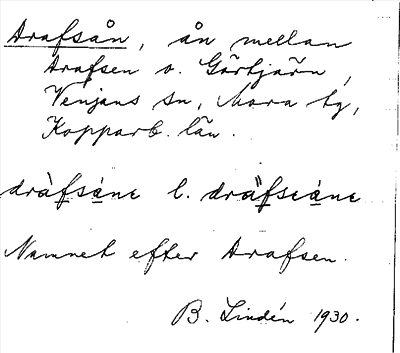 Drafsån, ån mellan
Drafsen o. Gårtjärn,
Venjans sn, Mora tg,
Kopparb. län.
dràfsánɛ l. dräfsɛánɛ
Namnet efter Drafsen.
B. Lindén 1930.